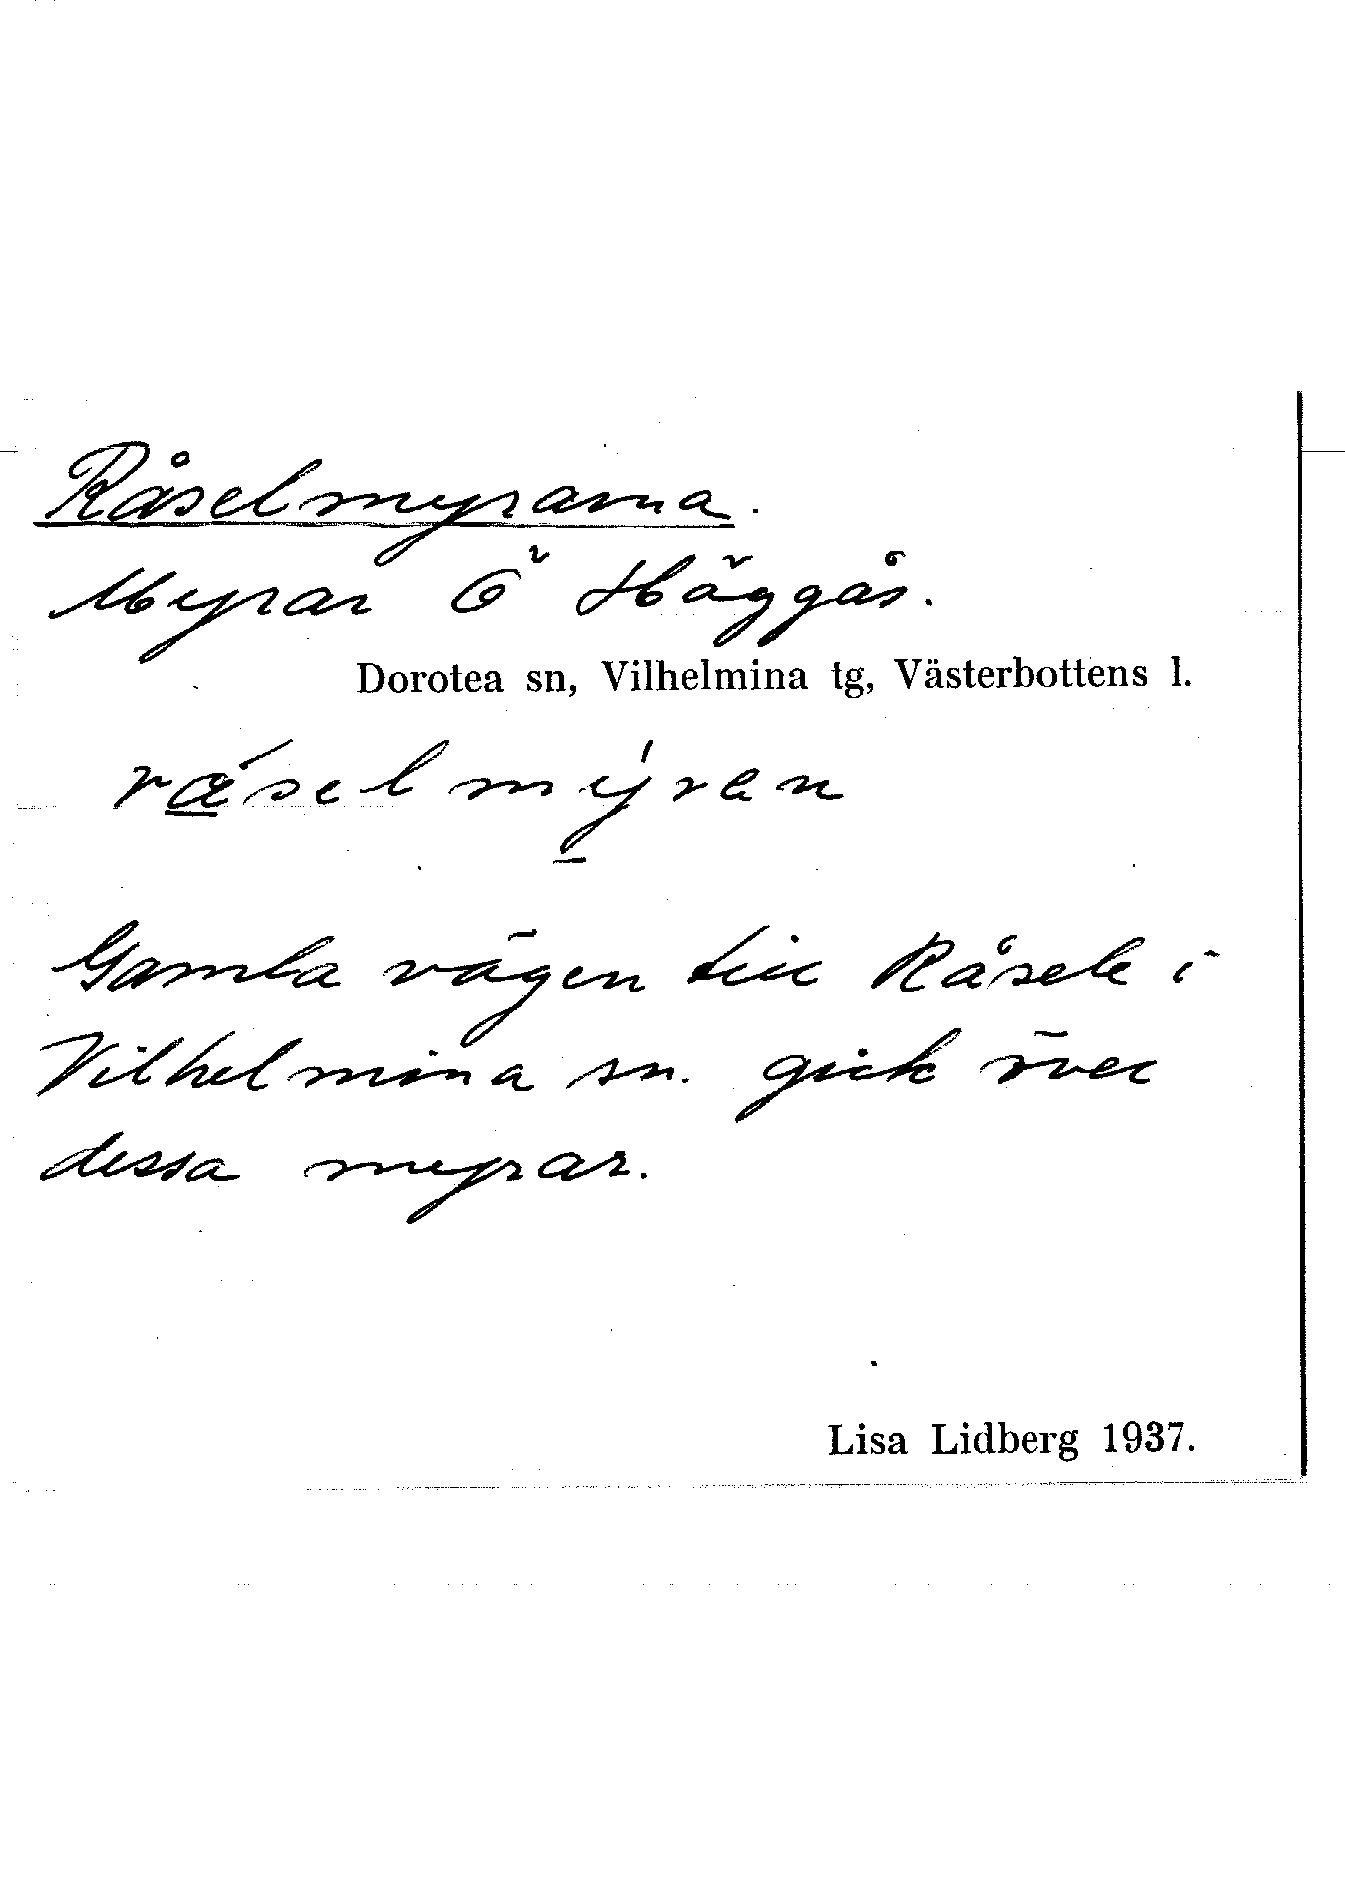 Råselmyrarna.
Myrar Ö Häggås.
Dorotea sn, Vilhelmina tg, Västerbottens l.
rǽselmýren
Gamla vägen till Råsele i
Vilhelmina sn. gick över
dessa myrar.
Lisa Lidberg 1937.